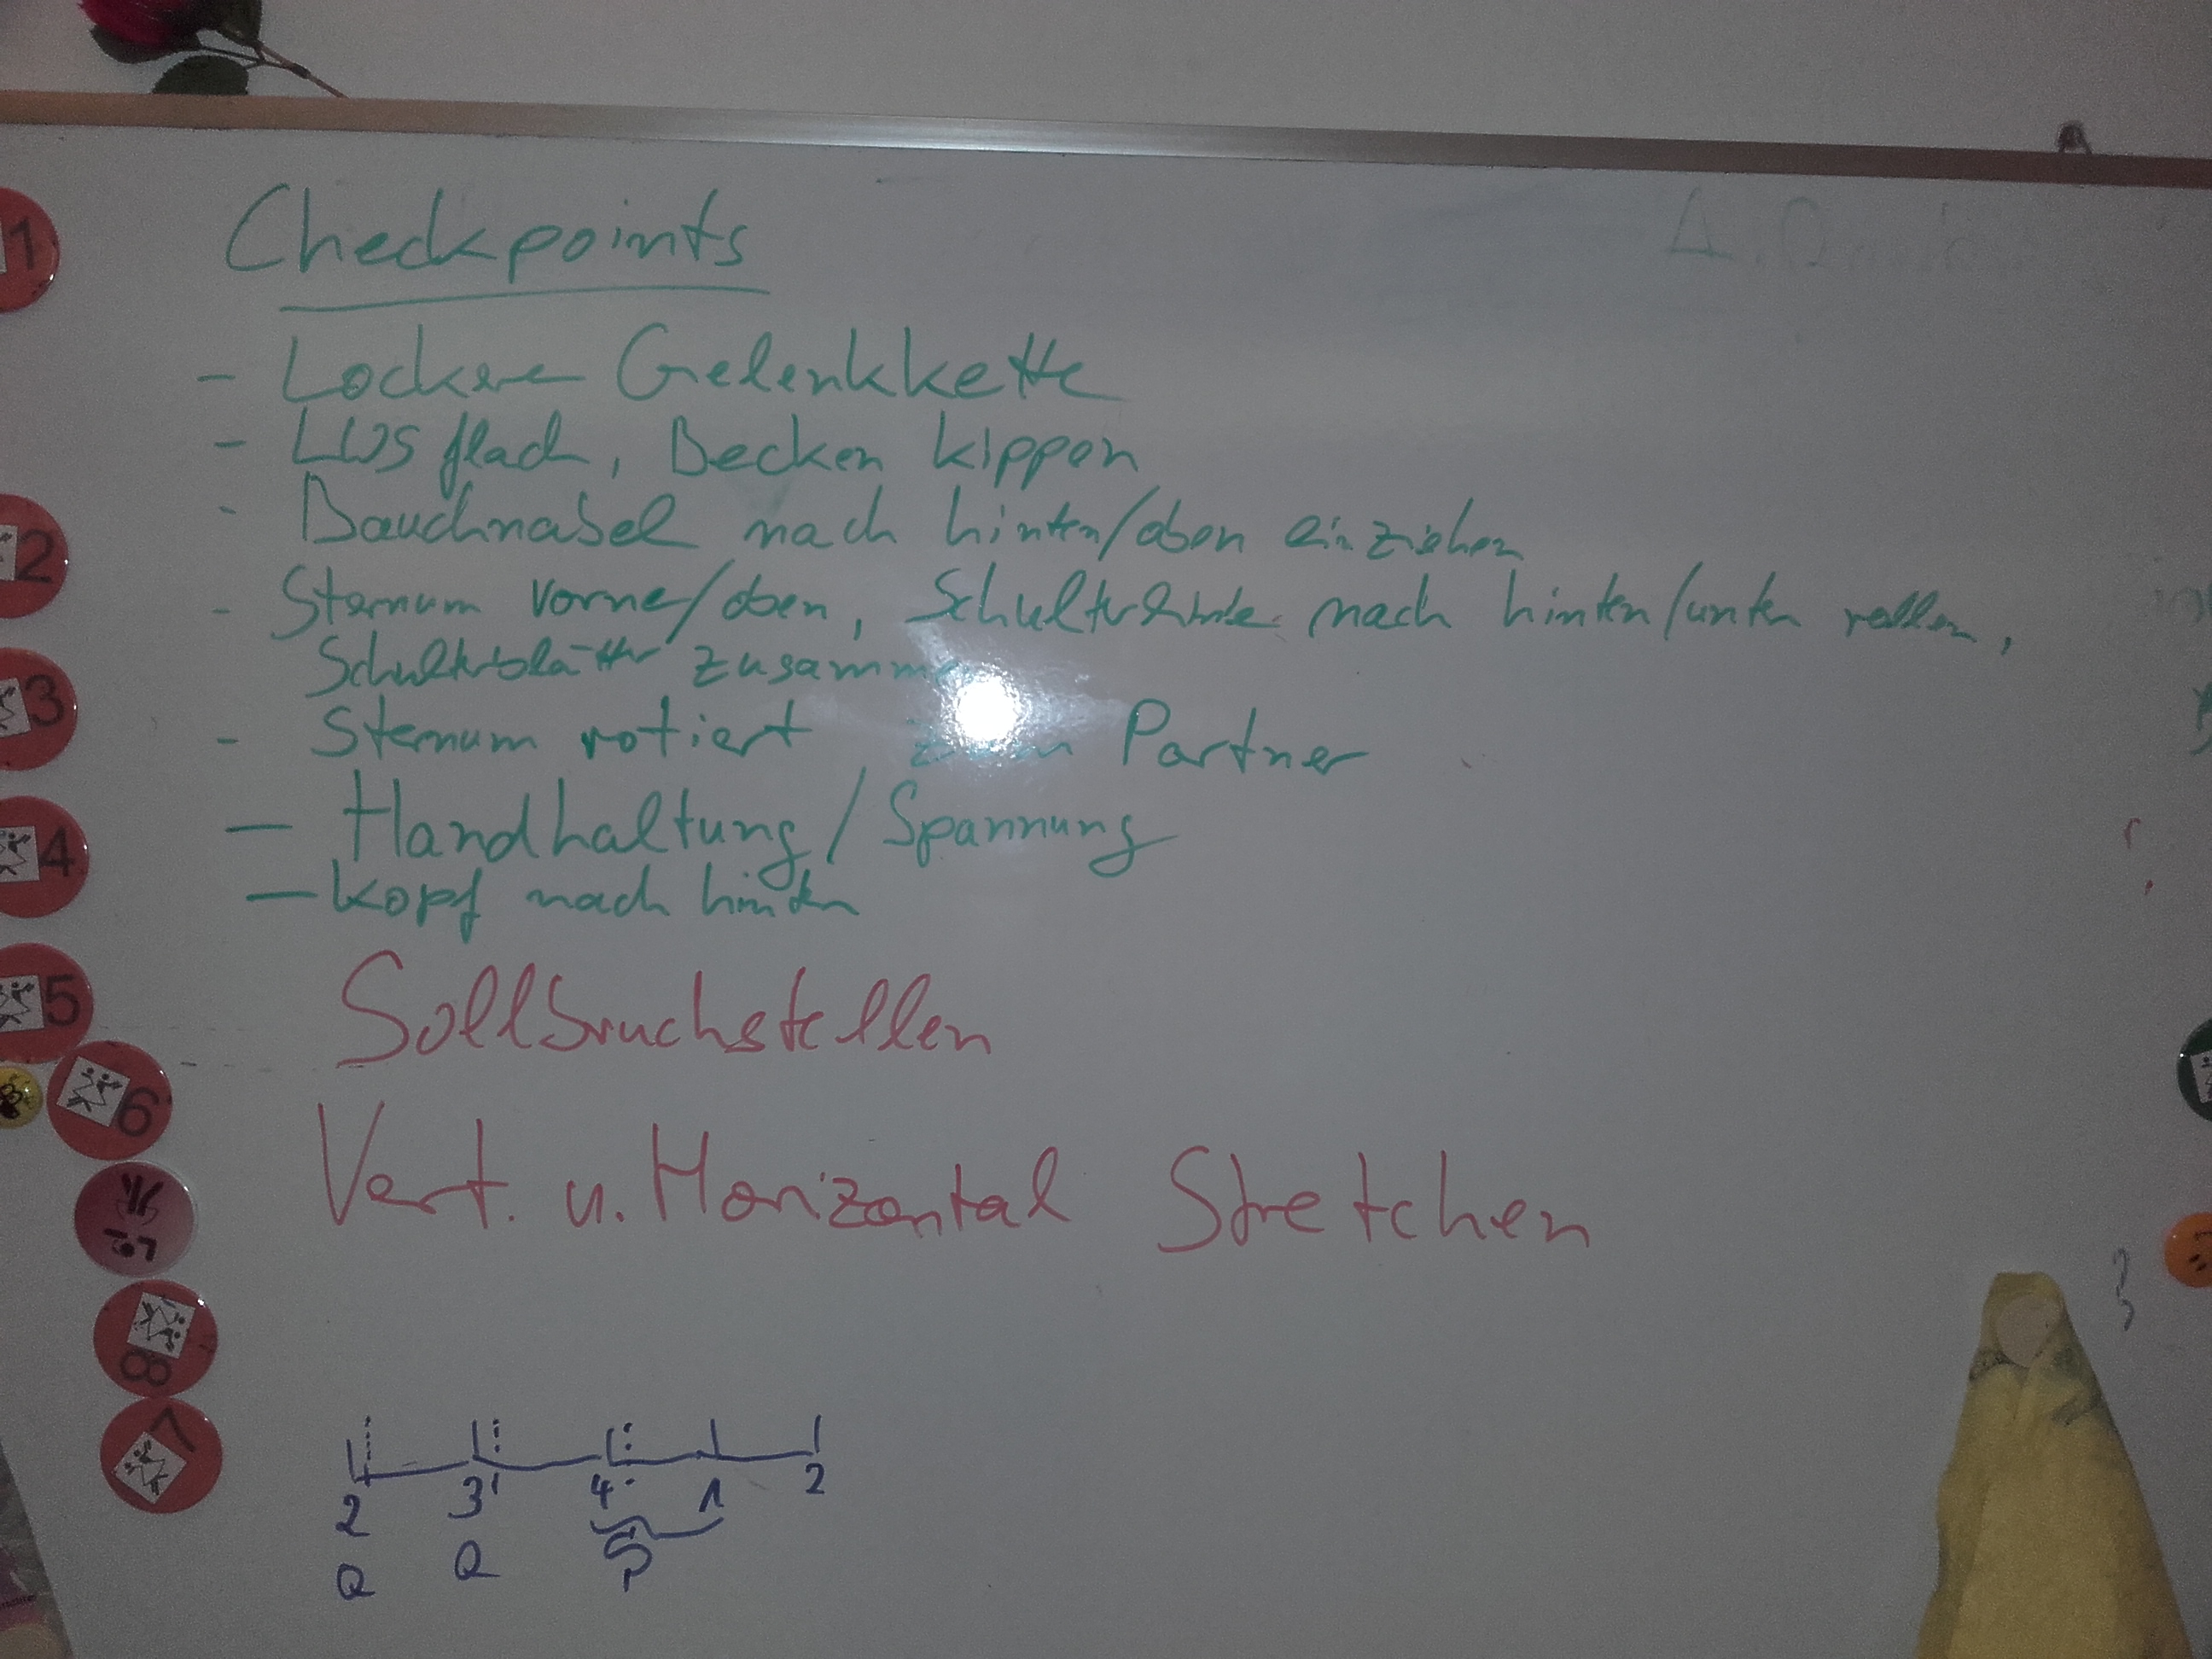 Checkpoints
- Lockere Gelenkkette
- LWS flach, Becken kippen
- Bauchnabel nach hinten/oben einziehen
- Sternum vorne/oben, nach hinten/unten rollen,
Schulterblätter zusammen
- Sternum rotiert zum Partner
- Handhaltung/Spannung
- Kopf nach hinten
Sollbruchstellen
Vert. u. Horizontal Stretchen
2 3 4 1 2
Q Q S
1
2
3
4
5
6
8
7